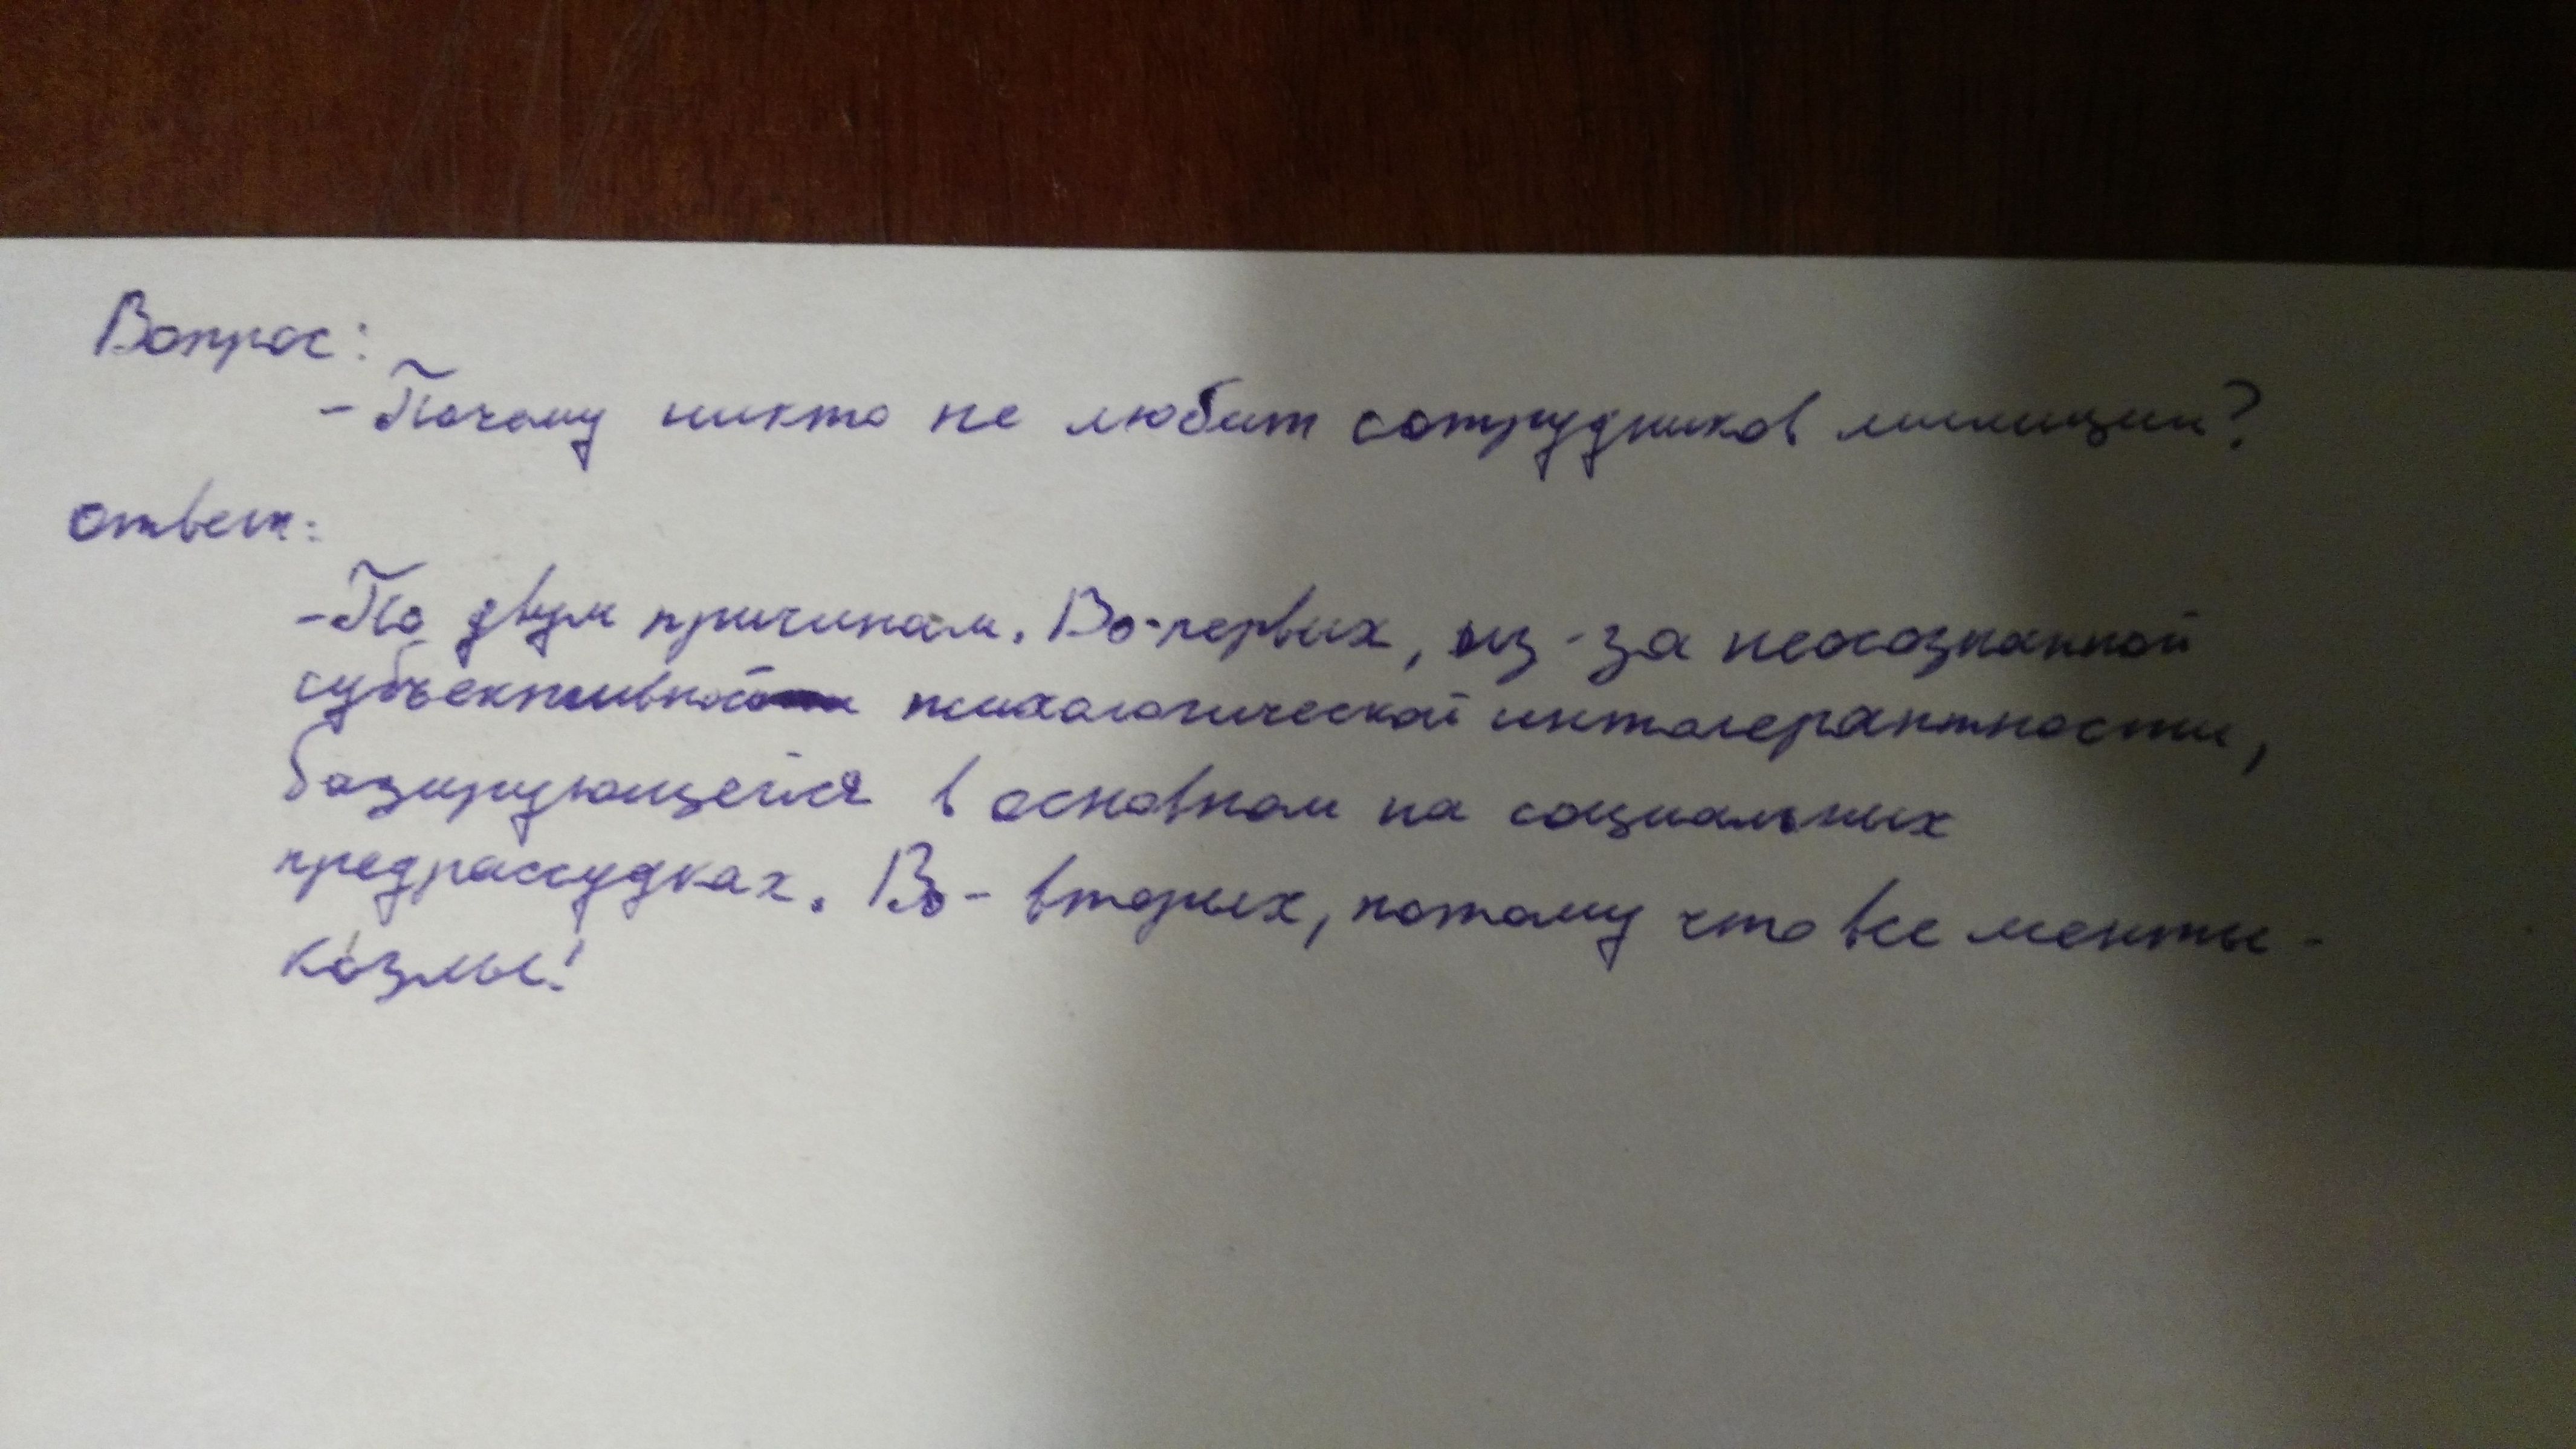 Вопрос:
- Почему никто не любит сотрудников милиции?
ответ:
- По двум причинам. Во-первых, из-за неосознанной
субъективной психологической интолерантности,
базирующейся в основном на социальных
предрассудках. Во-вторых, потому что все менты -
козлы!